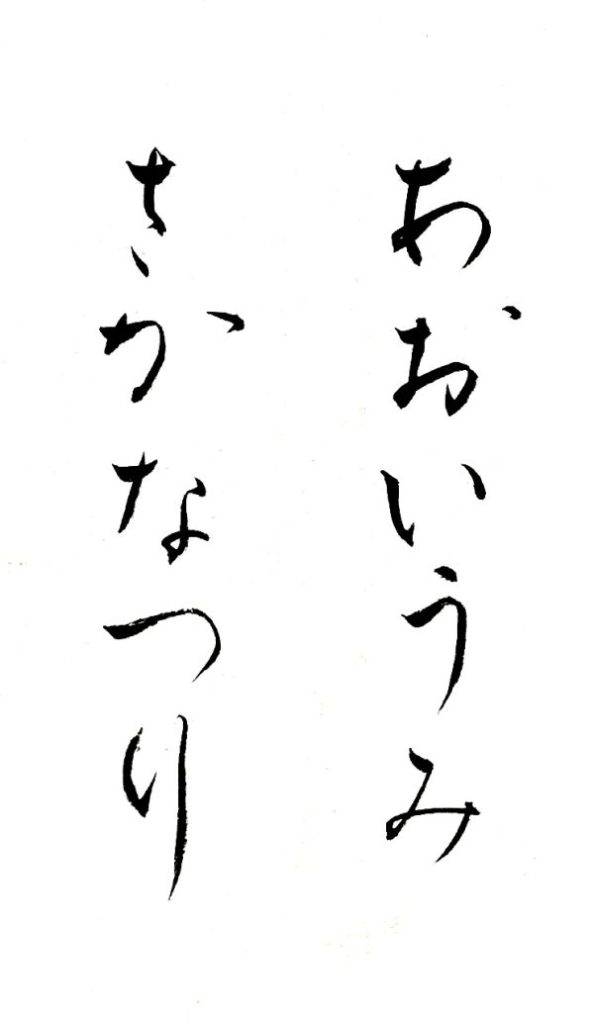 あおいうみ
さかなつり